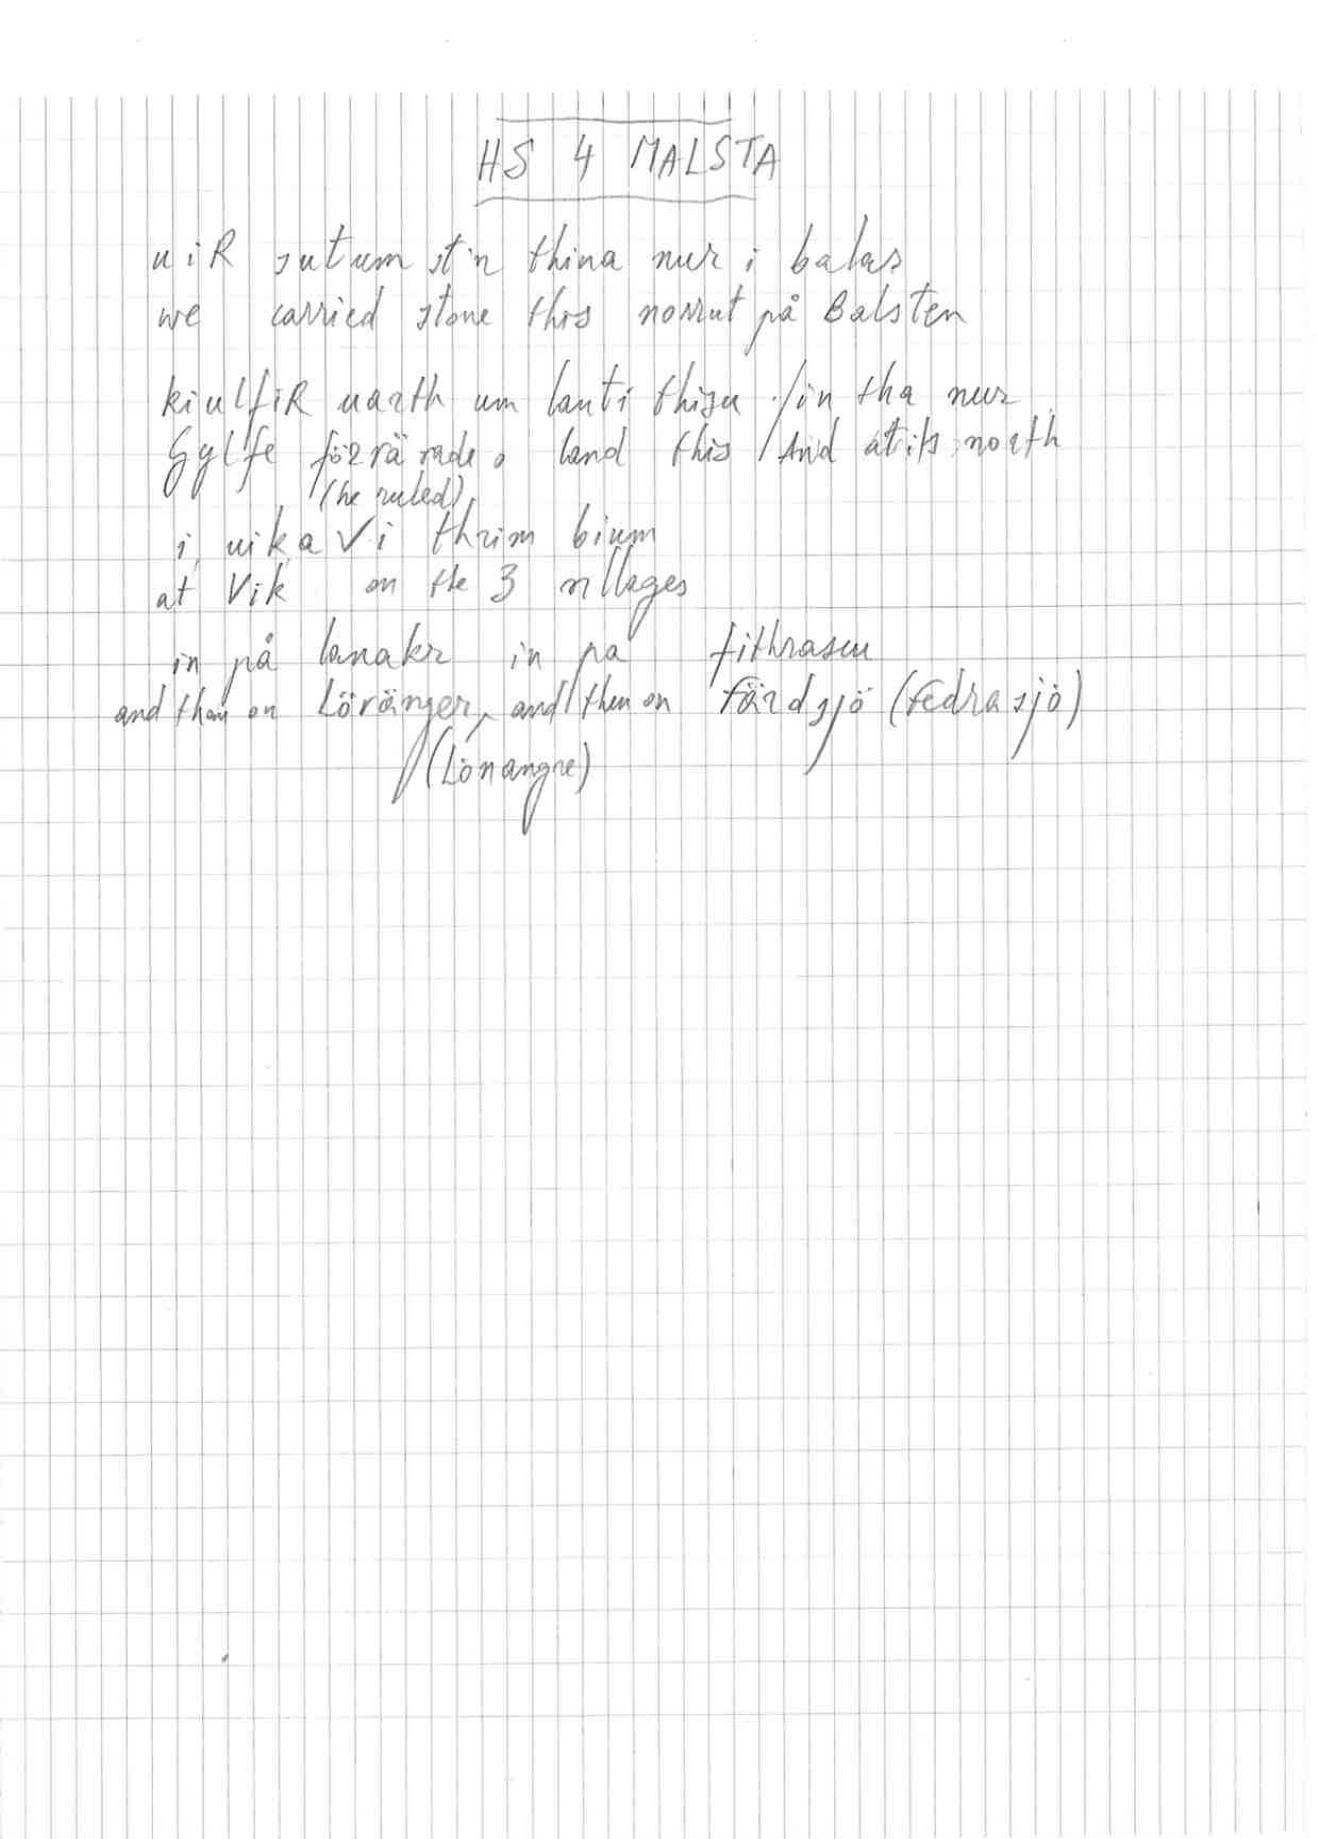 HS 4 MALSTA
uiR sutum st·n thina nur i balas
we carried stone this norrut på Balsten
kiulfiR uarth um lanti thisu / in tha nur
Gylfe förrärade, land this / And at its north
(he ruled)
i uika V i thrim bium
at Vik on the 3 villages
in på lanakr in pa fithrasiu
and then on Löränger, and then on Färdsjö (Fedrasjö)
(Lönangre)